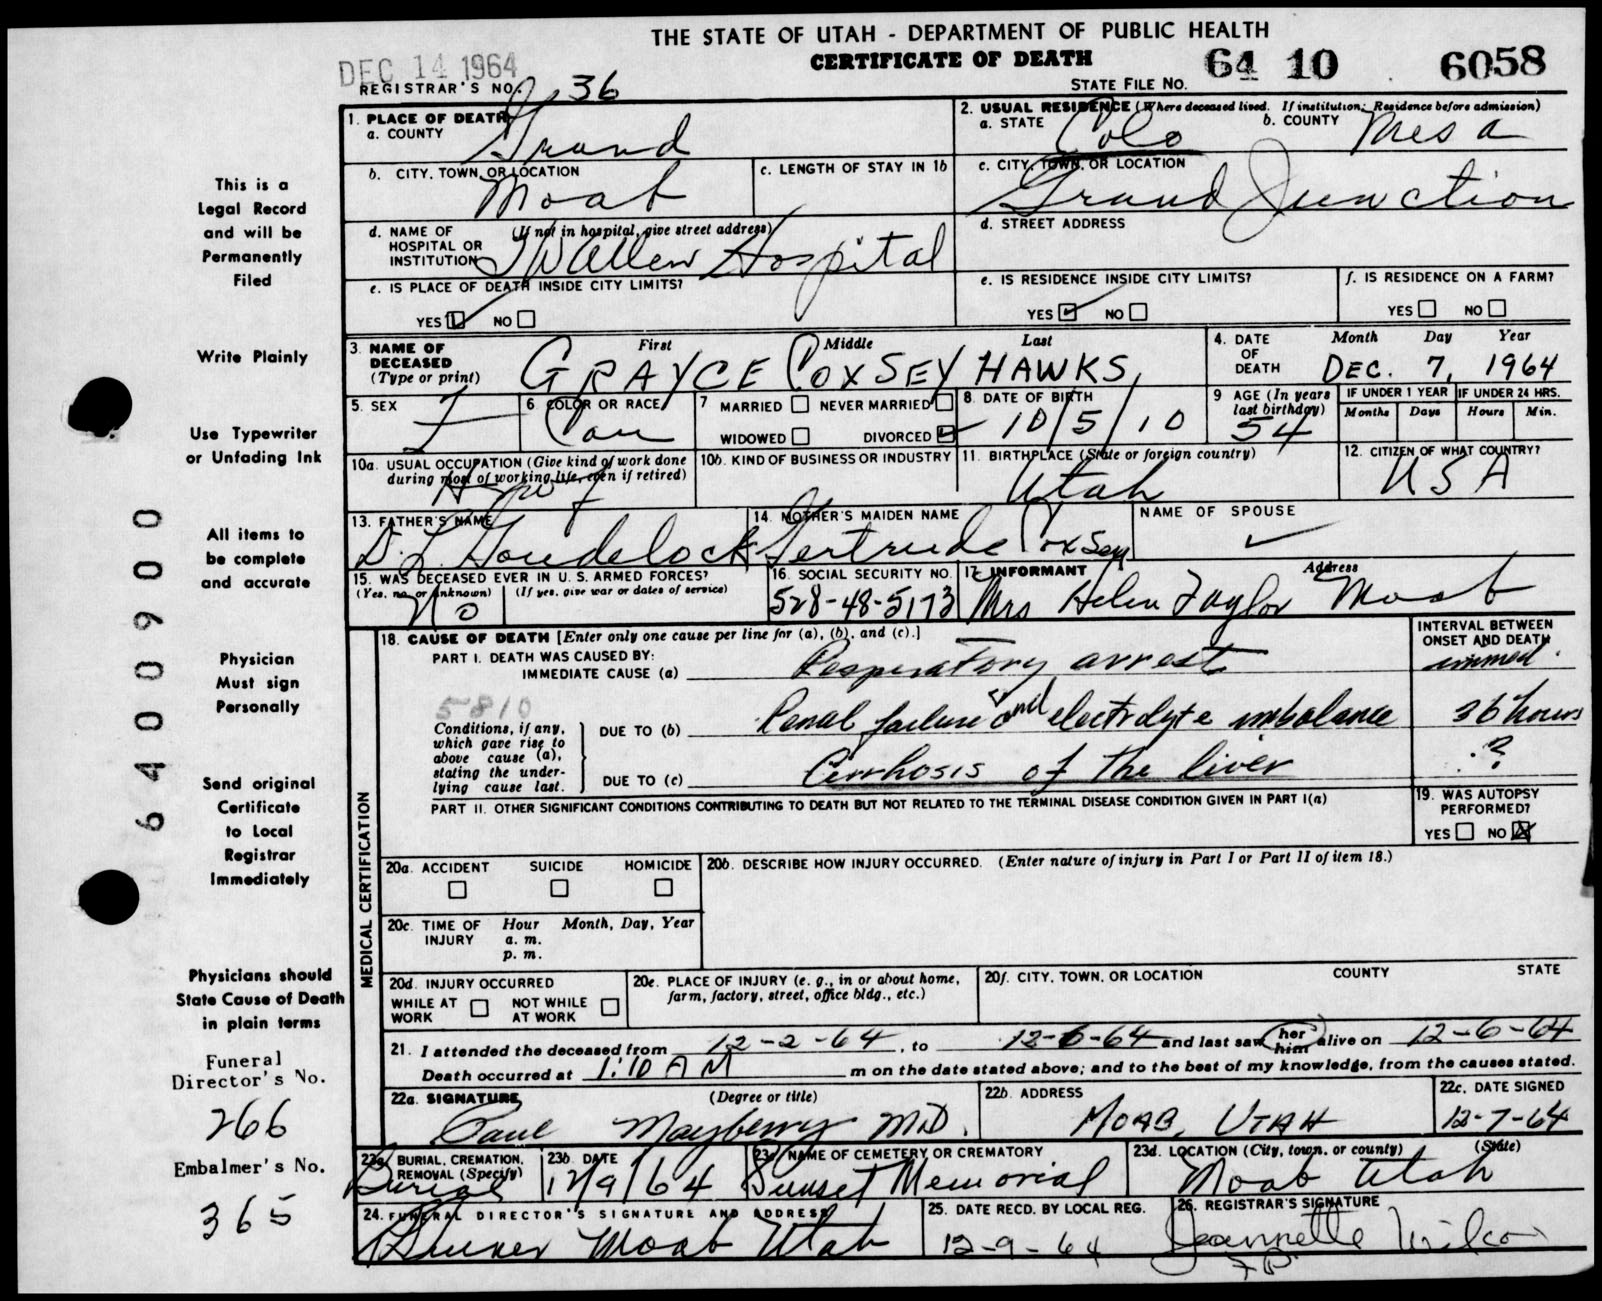 THE STATE OF UTAH - DEPARTMENT OF PUBLIC HEALTH
CERTIFICATE OF DEATH
DEC 14 1964
REGISTRAR'S NO. 36
STATE FILE NO. 64 10 6058
This is a
Legal Record
and will be
Permanently
Filed
Write Plainly
Use Typewriter
or Unfading Ink
All items to
be complete
and accurate
Physician
Must sign
Personally
Send original
Certificate
to Local
Registrar
Immediately
Physicians should
State Cause of Death
in plain terms
Funeral
Director's No.
266
Embalmer's No.
365
6400900
1. PLACE OF DEATH
a. COUNTY Grand
2. USUAL RESIDENCE (Where deceased lived. If institution: Residence before admission)
a. STATE Colo b. COUNTY Mesa
b. CITY, TOWN, OR LOCATION Moab
c. LENGTH OF STAY IN 1b
c. CITY, TOWN, OR LOCATION Grand Junction
d. NAME OF HOSPITAL OR INSTITUTION (If not in hospital, give street address) Hospital
d. STREET ADDRESS
e. IS PLACE OF DEATH INSIDE CITY LIMITS?
YES NO
e. IS RESIDENCE INSIDE CITY LIMITS?
YES NO
f. IS RESIDENCE ON A FARM?
YES NO
3. NAME OF DECEASED (Type or print) First Middle Last
GRAYCE COXSEY HAWKS
4. DATE OF DEATH Month Day Year
DEC. 7, 1964
5. SEX F
6 COLOR OR RACE Cau
7 MARRIED NEVER MARRIED
WIDOWED DIVORCED
8. DATE OF BIRTH 10/5/10
9 AGE (In years last birthday) 54
IF UNDER 1 YEAR Months Days
IF UNDER 24 HRS. Hours Min.
10a. USUAL OCCUPATION (Give kind of work done during most of working life, even if retired)
10b. KIND OF BUSINESS OR INDUSTRY
11. BIRTHPLACE (State or foreign country) Utah
12. CITIZEN OF WHAT COUNTRY? USA
13. FATHER'S NAME D. L. Goudelock
14. MOTHER'S MAIDEN NAME Gertrude Coxsey
NAME OF SPOUSE
15. WAS DECEASED EVER IN U. S. ARMED FORCES?
(Yes, no, or unknown) (If yes, give war or dates of service)
No
16. SOCIAL SECURITY NO. 528-48-5173
17. INFORMANT Address
Mrs Helen Taylor Moab
MEDICAL CERTIFICATION
18. CAUSE OF DEATH [Enter only one cause per line for (a), (b), and (c).]
INTERVAL BETWEEN ONSET AND DEATH
PART I. DEATH WAS CAUSED BY:
IMMEDIATE CAUSE (a) Respiratory arrest immed.
5810
Conditions, if any, which gave rise to above cause (a), stating the underlying cause last.
DUE TO (b) Renal failure and electrolyte imbalance 36 hours
DUE TO (c) Cirrhosis of the liver ?
PART II. OTHER SIGNIFICANT CONDITIONS CONTRIBUTING TO DEATH BUT NOT RELATED TO THE TERMINAL DISEASE CONDITION GIVEN IN PART I(a)
19. WAS AUTOPSY PERFORMED?
YES NO
20a. ACCIDENT SUICIDE HOMICIDE
20b. DESCRIBE HOW INJURY OCCURRED. (Enter nature of injury in Part I or Part II of item 18.)
20c. TIME OF INJURY Hour Month, Day, Year
a. m.
p. m.
20d. INJURY OCCURRED
WHILE AT WORK NOT WHILE AT WORK
20e. PLACE OF INJURY (e. g., in or about home, farm, factory, street, office bldg., etc.)
20f. CITY, TOWN, OR LOCATION COUNTY STATE
21. I attended the deceased from 12-2-64, to 12-6-64 and last saw her him alive on 12-6-64
Death occurred at 1:10 AM m on the date stated above; and to the best of my knowledge, from the causes stated.
22a. SIGNATURE (Degree or title)
Paul Mayberry MD.
22b. ADDRESS MOAB, UTAH
22c. DATE SIGNED 12-7-64
23a. BURIAL, CREMATION, REMOVAL (Specify) Burial
23b. DATE 12/9/64
23c. NAME OF CEMETERY OR CREMATORY Sunset Memorial
23d. LOCATION (City, town, or county) (State)
Moab Utah
24. FUNERAL DIRECTOR'S SIGNATURE AND ADDRESS
Moab Utah
25. DATE RECD. BY LOCAL REG. 12-9-64
26. REGISTRAR'S SIGNATURE
Jeannette Wilcox